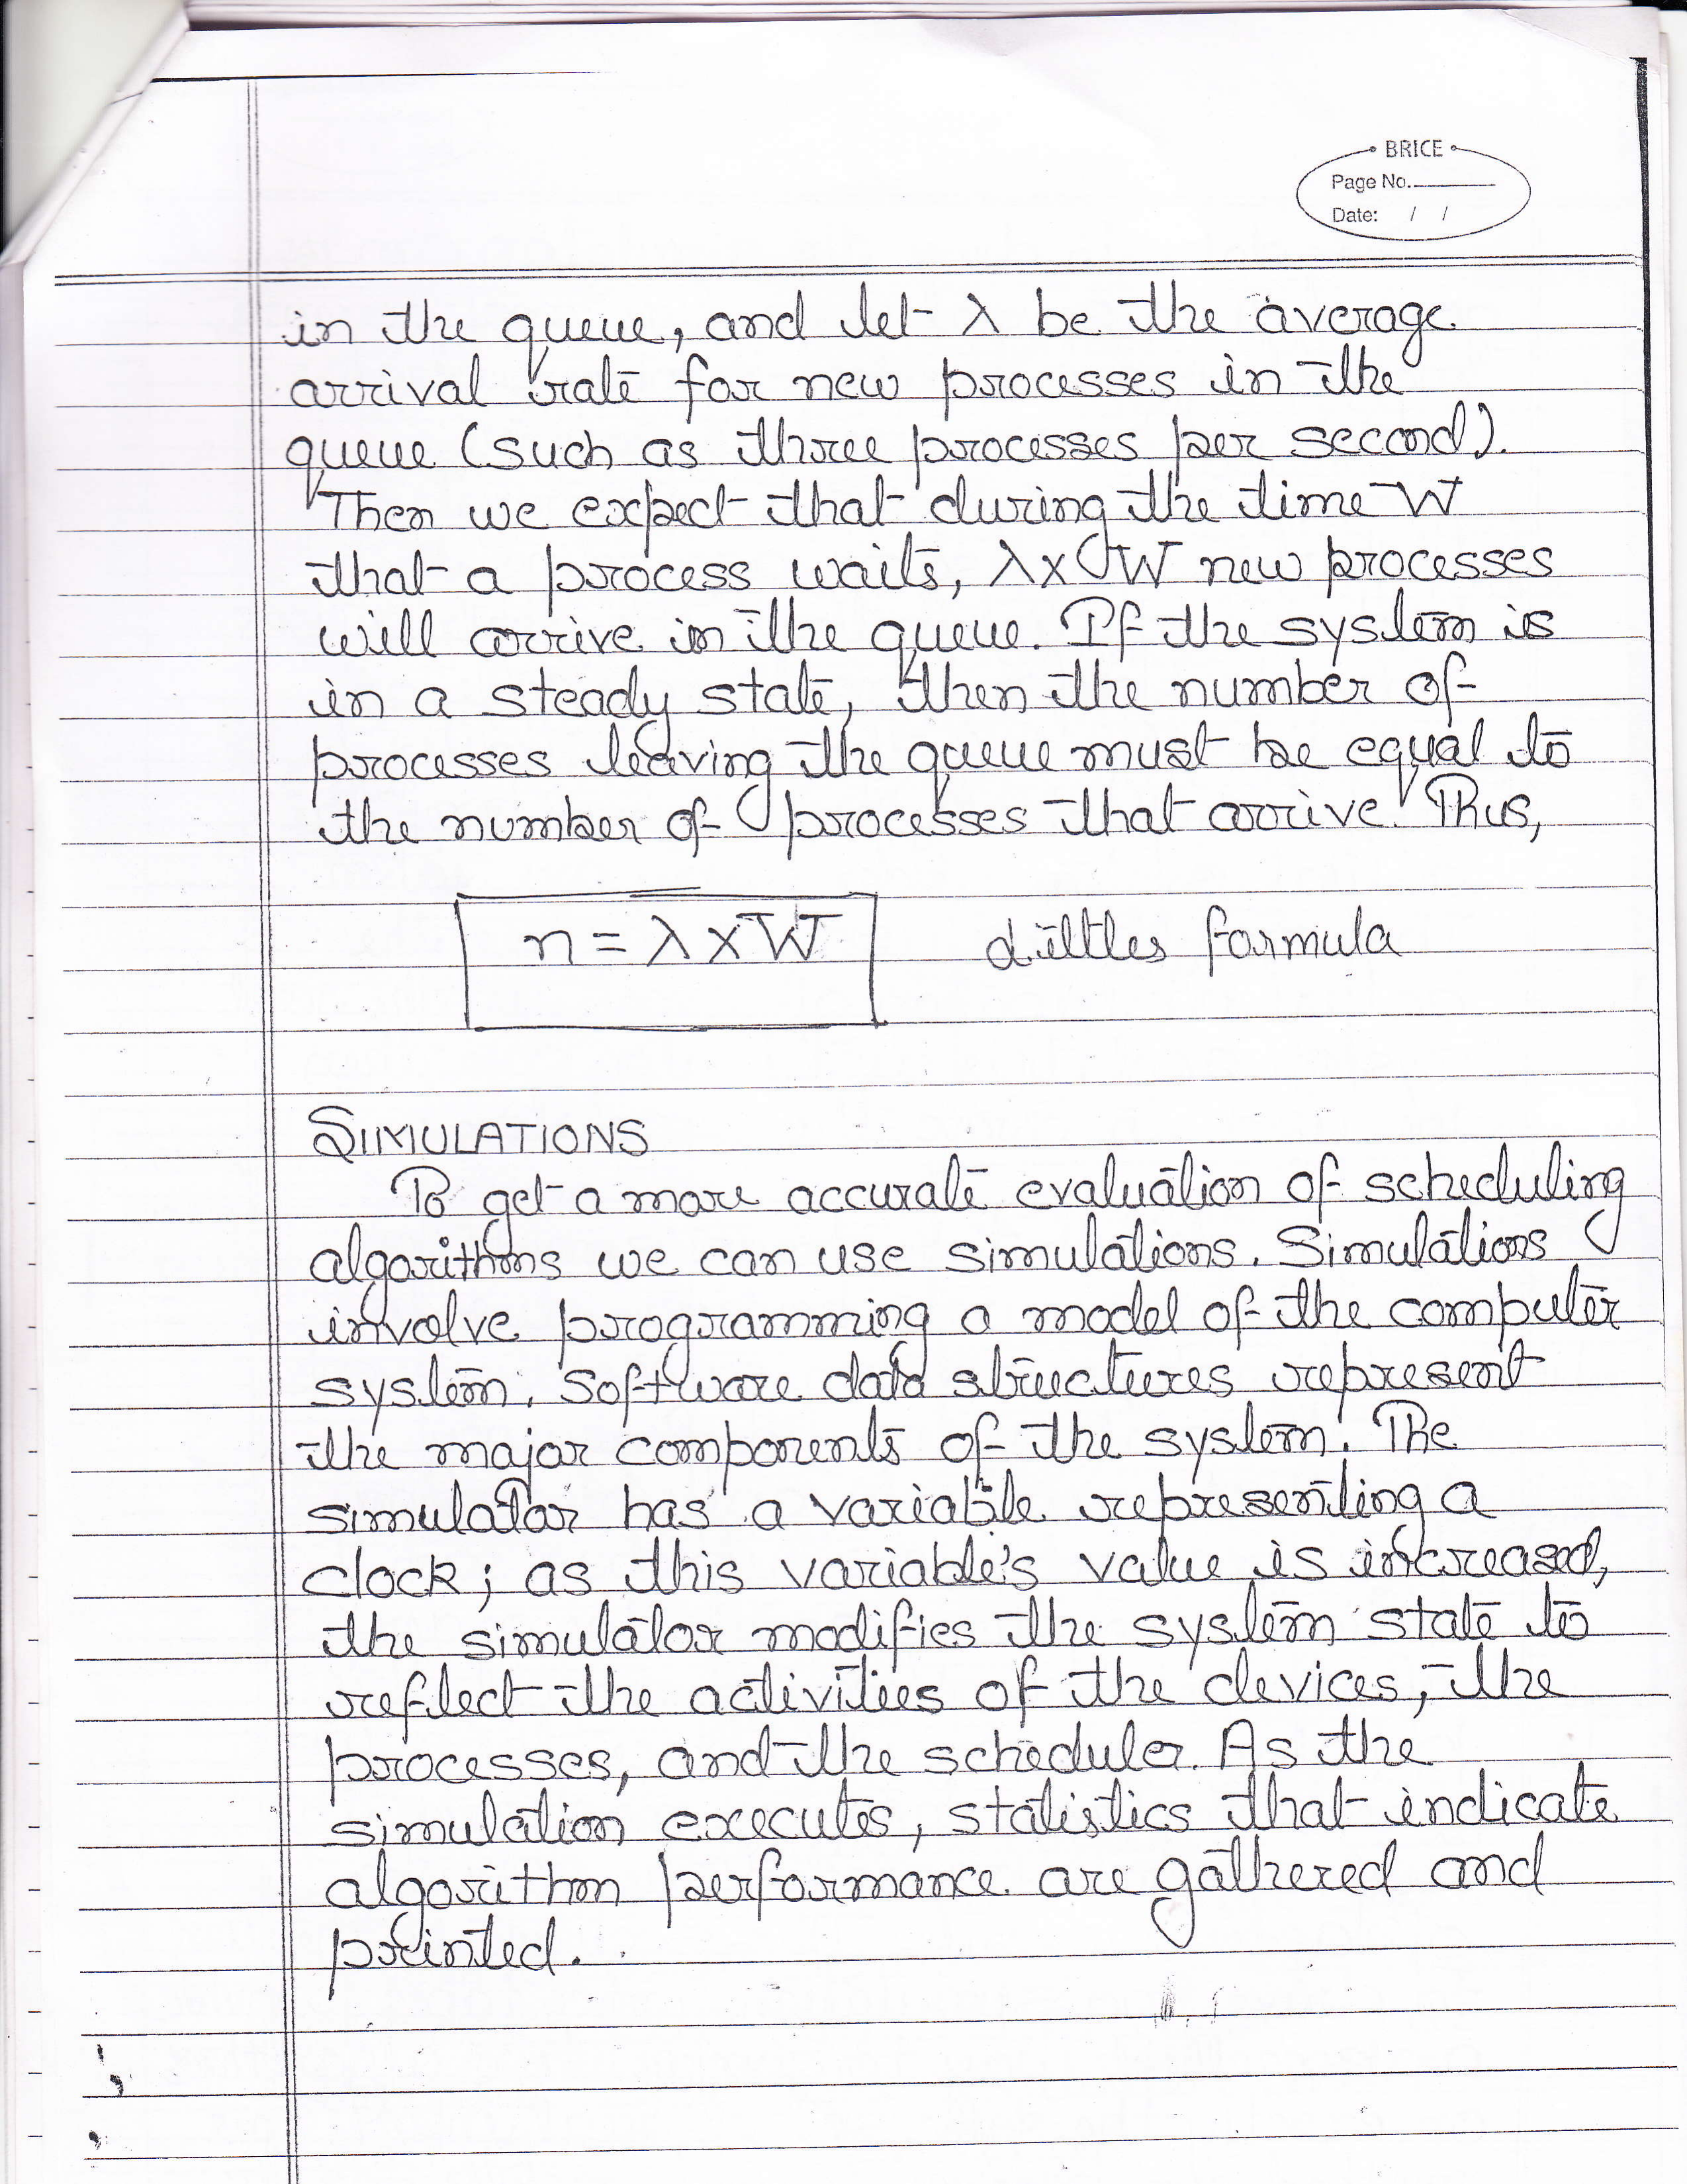 BRICE
Page No.
Date: / /
in the queue, and let λ be the average
arrival rate for new processes in the
queue (such as three processes per second).
Then we expect that during the time W
that a process waits, λ x W new processes
will arrive in the queue. If the system is
in a steady state, then the number of
processes leaving the queue must be equal to
the number of processes that arrive. Thus,
n = λ x W littles formula
SIMULATIONS
To get a more accurate evaluation of scheduling
algorithms we can use simulations. Simulations
involve programming a model of the computer
system. Software data structures represent
the major components of the system. The
simulator has a variable representing a
clock; as this variable's value is increased,
the simulator modifies the system state to
reflect the activities of the devices, the
processes, and the scheduler. As the
simulation executes, statistics that indicate
algorithm performance are gathered and
printed.